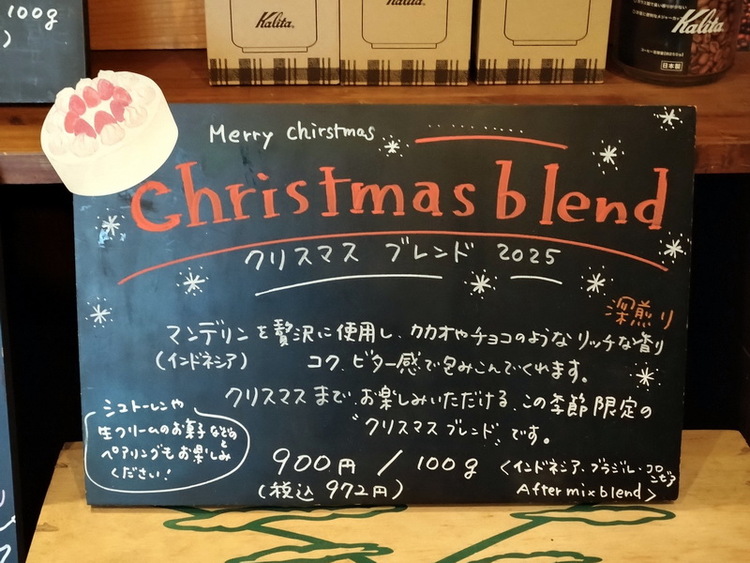 100g
)
Kalita
Kalita
Kalita
日本製
Merry chirstmas
Christmas blend
クリスマス ブレンド 2025
深煎り
マンデリンを贅沢に使用し、カカオやチョコのようなリッチな香り
(インドネシア)
コク、ビター感で包みこんでくれます。
クリスマスまで、お楽しみいただける、この季節限定の
"クリスマスブレンド"です。
シュトーレンや
生クリームのお菓子などのと
ペアリングもお楽しみ
ください!
900円 / 100g
(税込 972円)
<インドネシア・ブラジル・コロンビア
After mix blend>